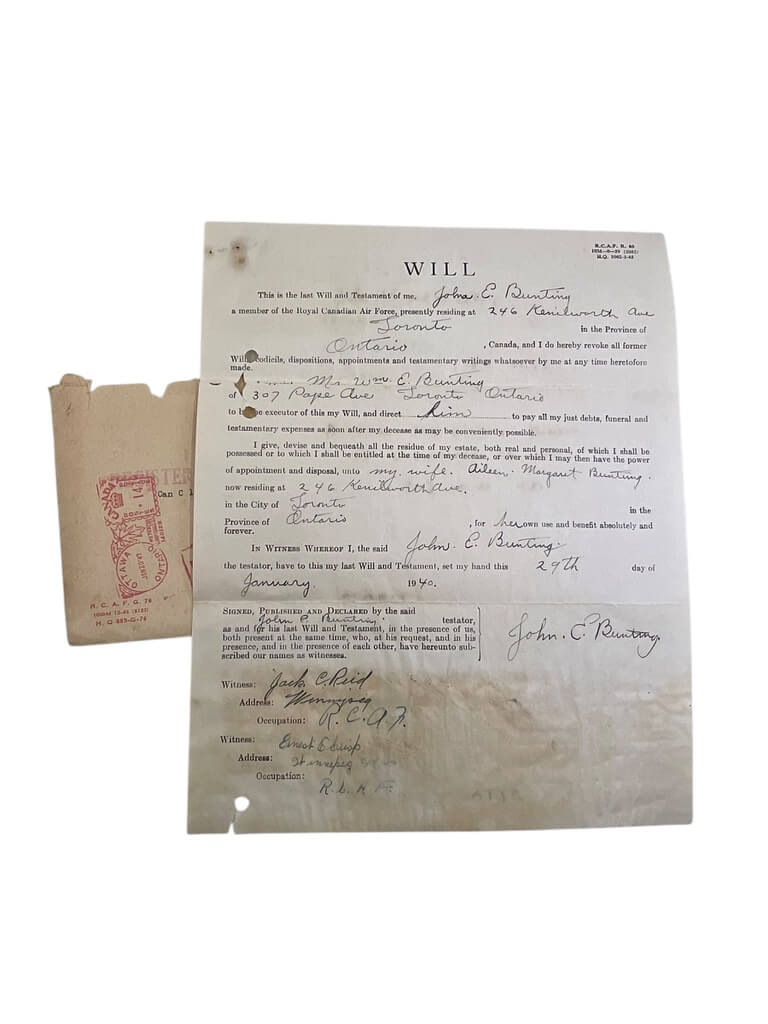 R.C.A.F. R. 60
H.Q. 1062-3-43
WILL
This is the last Will and Testament of me, John. E. Bunting
a member of the Royal Canadian Air Force, presently residing at 246 Kenilworth Ave
Toronto in the Province of
Ontario , Canada, and I do hereby revoke all former
Wills, codicils, dispositions, appointments and testamentary writings whatsoever by me at any time heretofore
made.
Mr. Wm. E. Bunting
of 307 Pape Ave Toronto Ontario
to be the executor of this my Will, and direct him to pay all my just debts, funeral and
testamentary expenses as soon after my decease as may be conveniently possible.
I give, devise and bequeath all the residue of my estate, both real and personal, of which I shall be
possessed or to which I shall be entitled at the time of my decease, or over which I may then have the power
of appointment and disposal, unto my wife. Aileen. Margaret Bunting.
now residing at 246 Kenilworth Ave.
in the City of Toronto in the
Province of Ontario , for her own use and benefit absolutely and
forever.
IN WITNESS WHEREOF I, the said John. E. Bunting.
the testator, have to this my last Will and Testament, set my hand this 29th day of
January. 1940.
SIGNED, PUBLISHED AND DECLARED by the said
John E. Bunting. testator,
as and for his last Will and Testament, in the presence of us,
both present at the same time, who, at his request, and in his
presence, and in the presence of each other, have hereunto sub-
scribed our names as witnesses.
John. E. Bunting.
Witness: Jack C. Reid
Address: Winnypeg
Occupation: R.C.A.F.
Witness: Ernest E Crisp
Address: Winnepeg
Occupation:
R.C.A.F.
REGISTER
Can C 1
CANADA
OTTAWA
ONTARIO
R.C.A.F. G. 76
H.Q 885-G-76